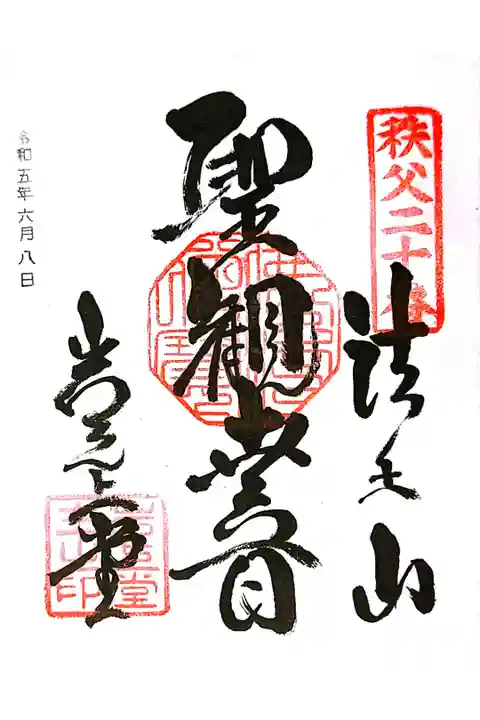 秩父二十番
法王山
聖観世音
岩之上堂
令和五年六月八日